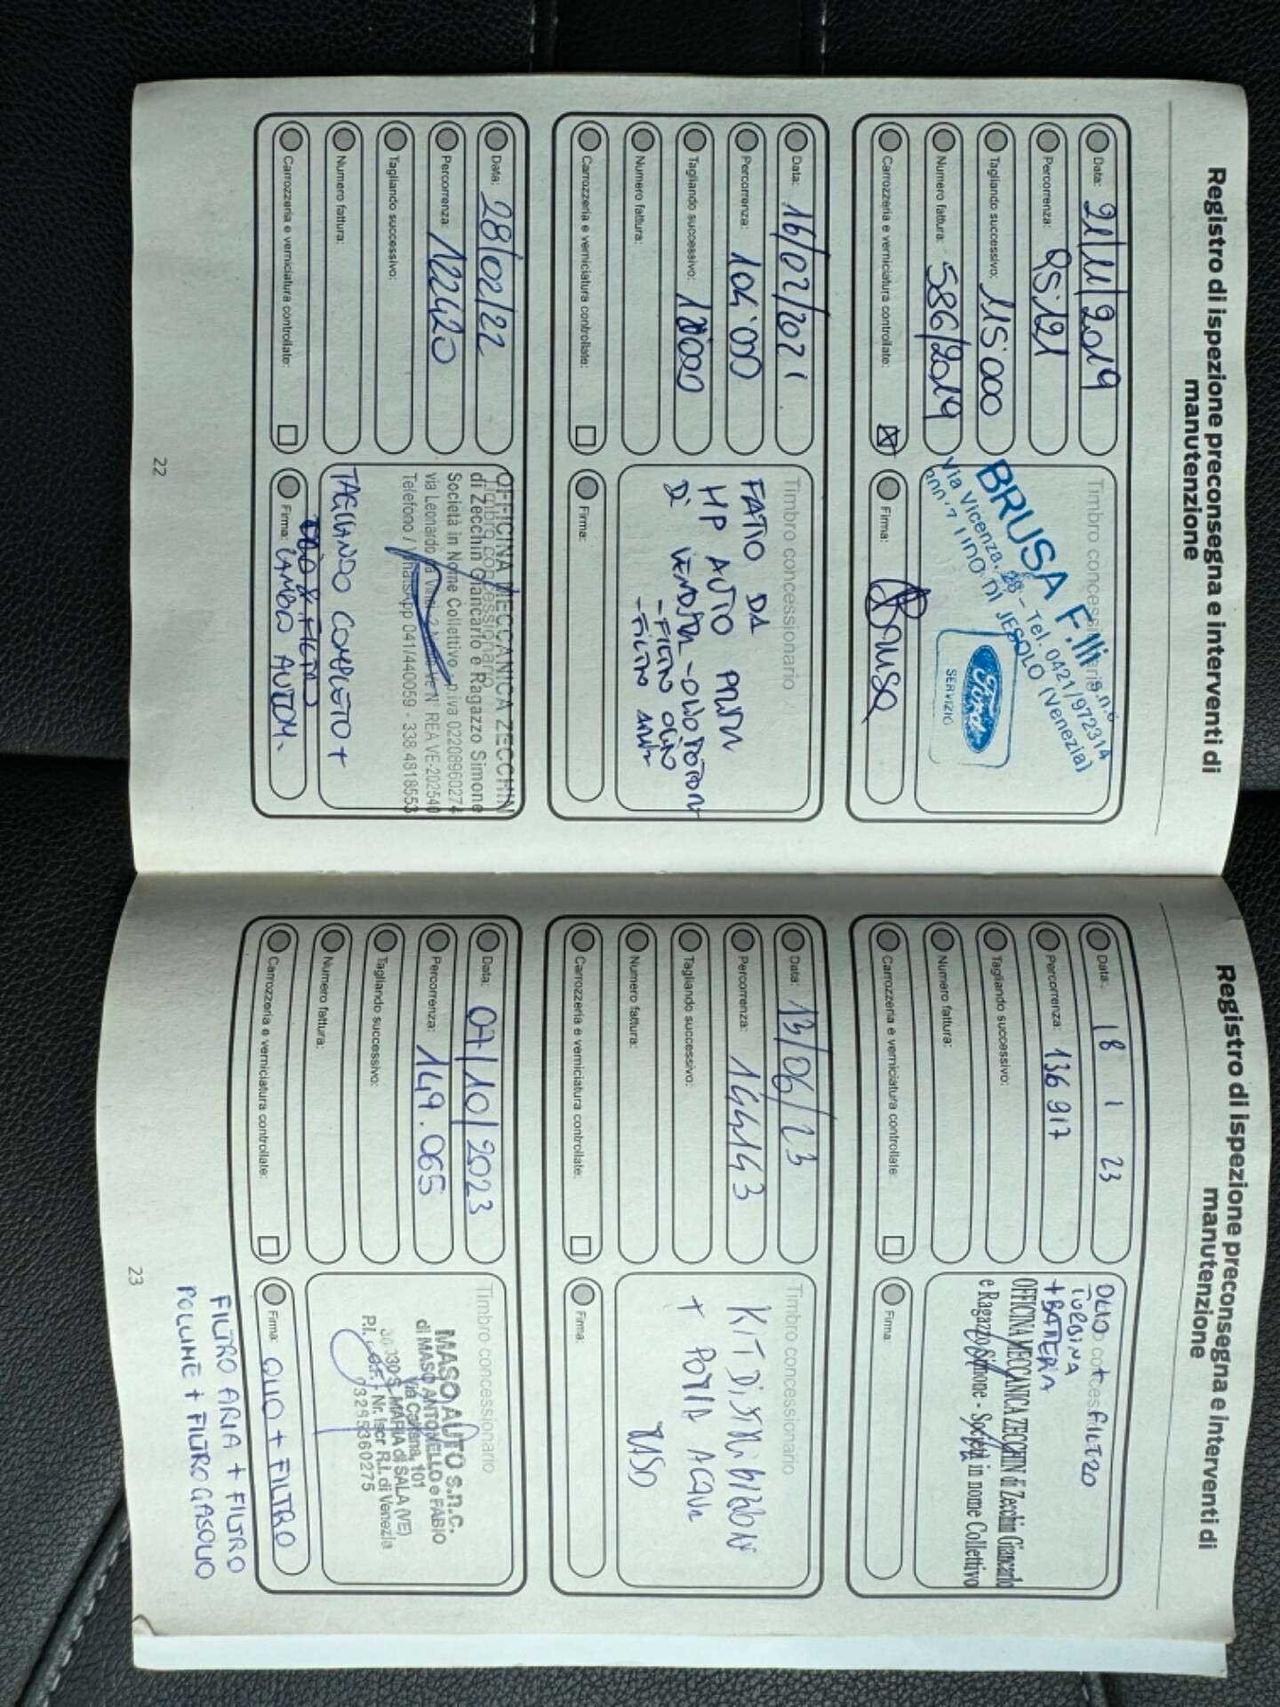 Registro di ispezione preconsegna e interventi di
manutenzione
Data: 21/11/2019
Percorrenza: 95.121
Tagliando successivo: 115.000
Numero fattura: 586/2019
Carrozzeria e verniciatura controllate:
Timbro concessionario
BRUSA F.lli s.n.c.
Via Vicenza, 28 - Tel. 0421/972314
LIDO DI JESOLO (Venezia)
Ford
SERVIZIO
Firma: Brusa
Data: 16/02/2021
Percorrenza: 104.000
Tagliando successivo:
Numero fattura:
Carrozzeria e verniciatura controllate:
Timbro concessionario
FATTO DA
HP AUTO PRIMA
DI VENDITA - OLIO MOTORE
- FILTRO OLIO
- FILTRO ARIA
Firma:
Data: 28/02/22
Percorrenza: 122420
Tagliando successivo:
Numero fattura:
Carrozzeria e verniciatura controllate:
Timbro concessionario
OFFICINA MECCANICA ZECCHIN
di Zecchin Giancarlo e Ragazzo Simone
Società in Nome Collettivo p.iva 02208960274
via Leonardo da Vinci N° REA VE-202540
Telefono / WhatsApp 041/440059 - 338 4818553
TAGLIANDO COMPLETO +
Firma: CAMBIO AUTOM.
22
Registro di ispezione preconsegna e interventi di
manutenzione
Data: 18 1 23
Percorrenza: 136 917
Tagliando successivo:
Numero fattura:
Carrozzeria e verniciatura controllate:
OLIO + FILTRO
TURBINA
+ BATTERIA
OFFICINA MECCANICA ZECCHIN di Zecchin Giancarlo
e Ragazzo Simone - Società in nome Collettivo
Firma:
Data: 13/06/23
Percorrenza: 144143
Tagliando successivo:
Numero fattura:
Carrozzeria e verniciatura controllate:
Timbro concessionario
KIT DISTRIBUZIONE
+ POMPA ACQUA
Firma:
Data: 07/10/2023
Percorrenza: 149.065
Tagliando successivo:
Numero fattura:
Carrozzeria e verniciatura controllate:
Timbro concessionario
MASO AUTO s.n.c.
di MASO ANTONELLO e FABIO
101
30030 S. MARIA di SALA (VE)
P.I. C.F. Nr. Iscr. R.I. di Venezia
Firma: OLIO + FILTRO
FILTRO ARIA + FILTRO
POLLINE + FILTRO GASOLIO
23